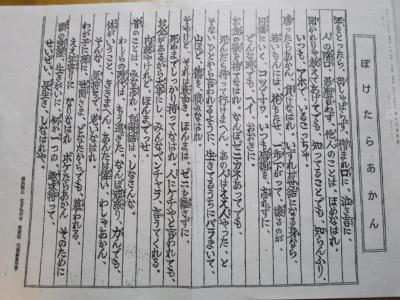 ぼけたらあかん
年をとったら出しゃばらず、憎まれ口に、泣き言に、
人のかげ口、愚痴言わず、他人のことは、ほめなはれ。
聞かれりゃ教えてあげてでも、知ってることでも、知らんふり、
いつも、アホでいるこっちゃ。
勝ったらあかん、負けなはれ、いずれお世話になる身なら、
若いもんには、花もたせ、一歩さがって、譲るのが
円満にいく、コツですわ。いつも感謝を、忘れずに、
どんな時でも、へえ、おおきに。
お金の欲を捨てなはれ、なんぼゼニカネあってでも、
死んだら持って行けまへん、あの人はええ人やった、と
ないひとから言われるように、生きてるうちにバラまいて、
山ほど徳を、積みなはれ。
そやけど、それは表向き、ほんまは、ゼニを離さずに、
死ぬまでしっかり持ってなはれ、人にケチやと言われても、
お金があるから大事にし、みんなベンチャラ、言うてくれる、
内緒やけれど、ほんまでっせ。
昔のことは、みな忘れ、自慢ばなしは、しなさんな、
わしらの時代は、もう過ぎた、なんぼ頑張り、力んでも、
体がいうこと、ききまへん、あんたはえらい、わしゃあかん、
そんな気持ちで、おいなはれ。
わが子に孫に、世間さま、どなたからでも、慕われる、
ええ年寄りに、なりなはれ、ボケたらあかん、そのために
何か一つの、趣味持って、
せいぜい、長生きしなはれや。